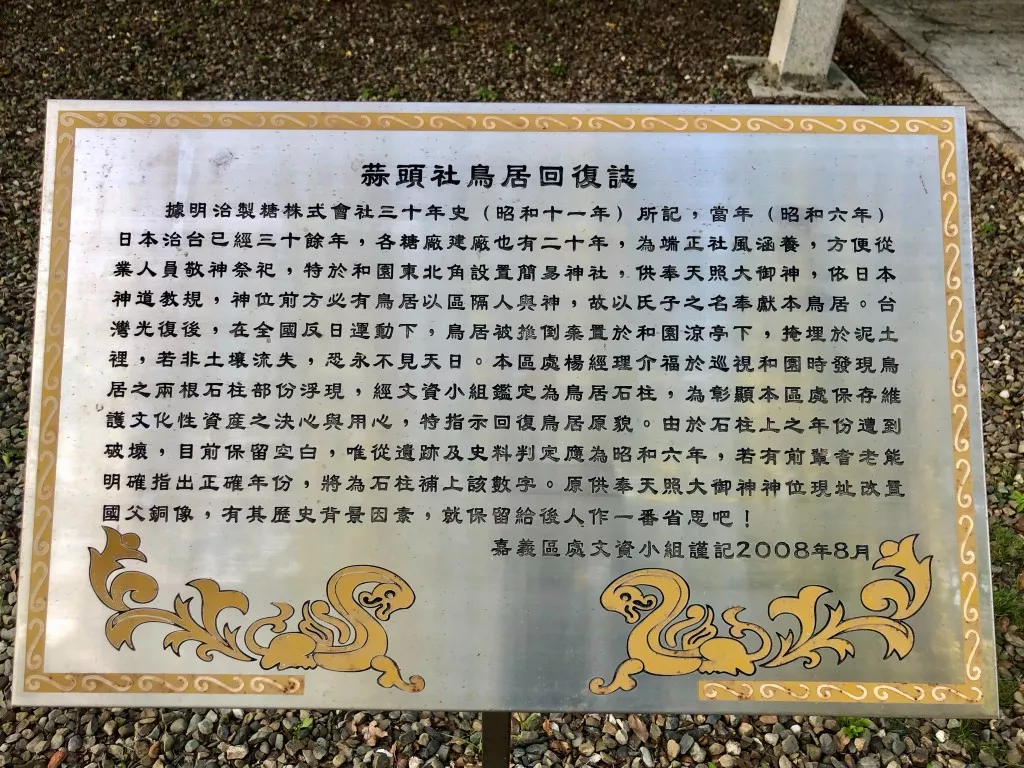 蒜頭社鳥居回復誌
據明治製糖株式會社三十年史（昭和十一年）所記，當年（昭和六年）
日本治台已經三十餘年，各糖廠建廠也有二十年，為端正社風涵養，方便從
業人員敬神祭祀，特於和園東北角設置簡易神社，供奉天照大御神，依日本
神道教規，神位前方必有鳥居以區隔人與神，故以氏子之名奉獻本鳥居。台
灣光復後，在全國反日運動下，鳥居被推倒棄置於和園涼亭下，掩埋於泥土
裡，若非土壤流失，恐永不見天日。本區處楊經理介福於巡視和園時發現鳥
居之兩根石柱部份浮現，經文資小組鑑定為鳥居石柱，為彰顯本區處保存維
護文化性資產之決心與用心，特指示回復鳥居原貌。由於石柱上之年份遭到
破壞，目前保留空白，唯從遺跡及史料判定應為昭和六年，若有前輩耆老能
明確指出正確年份，將為石柱補上該數字。原供奉天照大御神神位現址改置
國父銅像，有其歷史背景因素，就保留給後人作一番省思吧！
嘉義區處文資小組謹記2008年8月